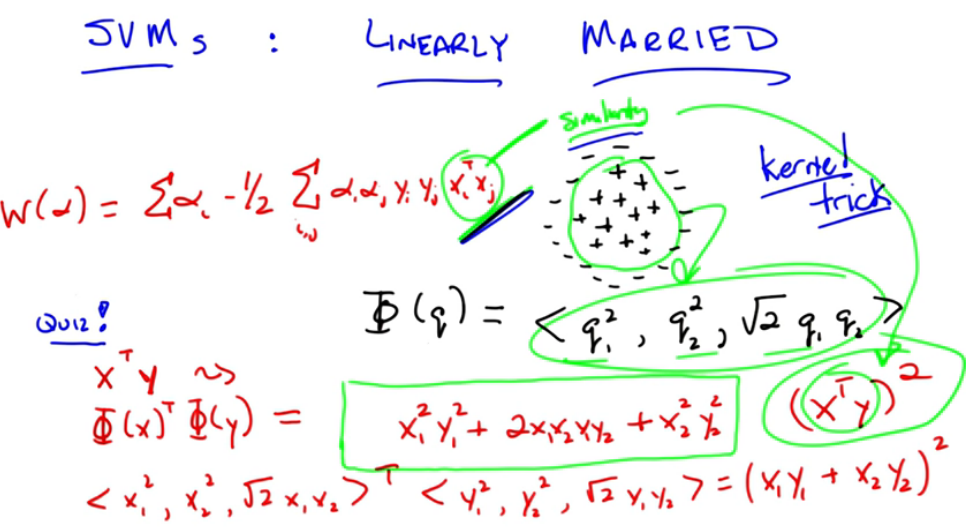 SVMs : LINEARLY MARRIED
similarity
kernel trick
W(α) = Σαᵢ - 1/2 Σᵢ,ⱼ αᵢαⱼ yᵢ yⱼ xᵢᵀxⱼ
Φ(q) = < q₁², q₂², √2 q₁ q₂ >
QUIZ!
xᵀy ~>
Φ(x)ᵀ Φ(y) = x₁²y₁² + 2x₁x₂y₁y₂ + x₂²y₂² (xᵀy)²
< x₁², x₂², √2 x₁x₂ >ᵀ < y₁², y₂², √2 y₁y₂ > = (x₁y₁ + x₂y₂)²